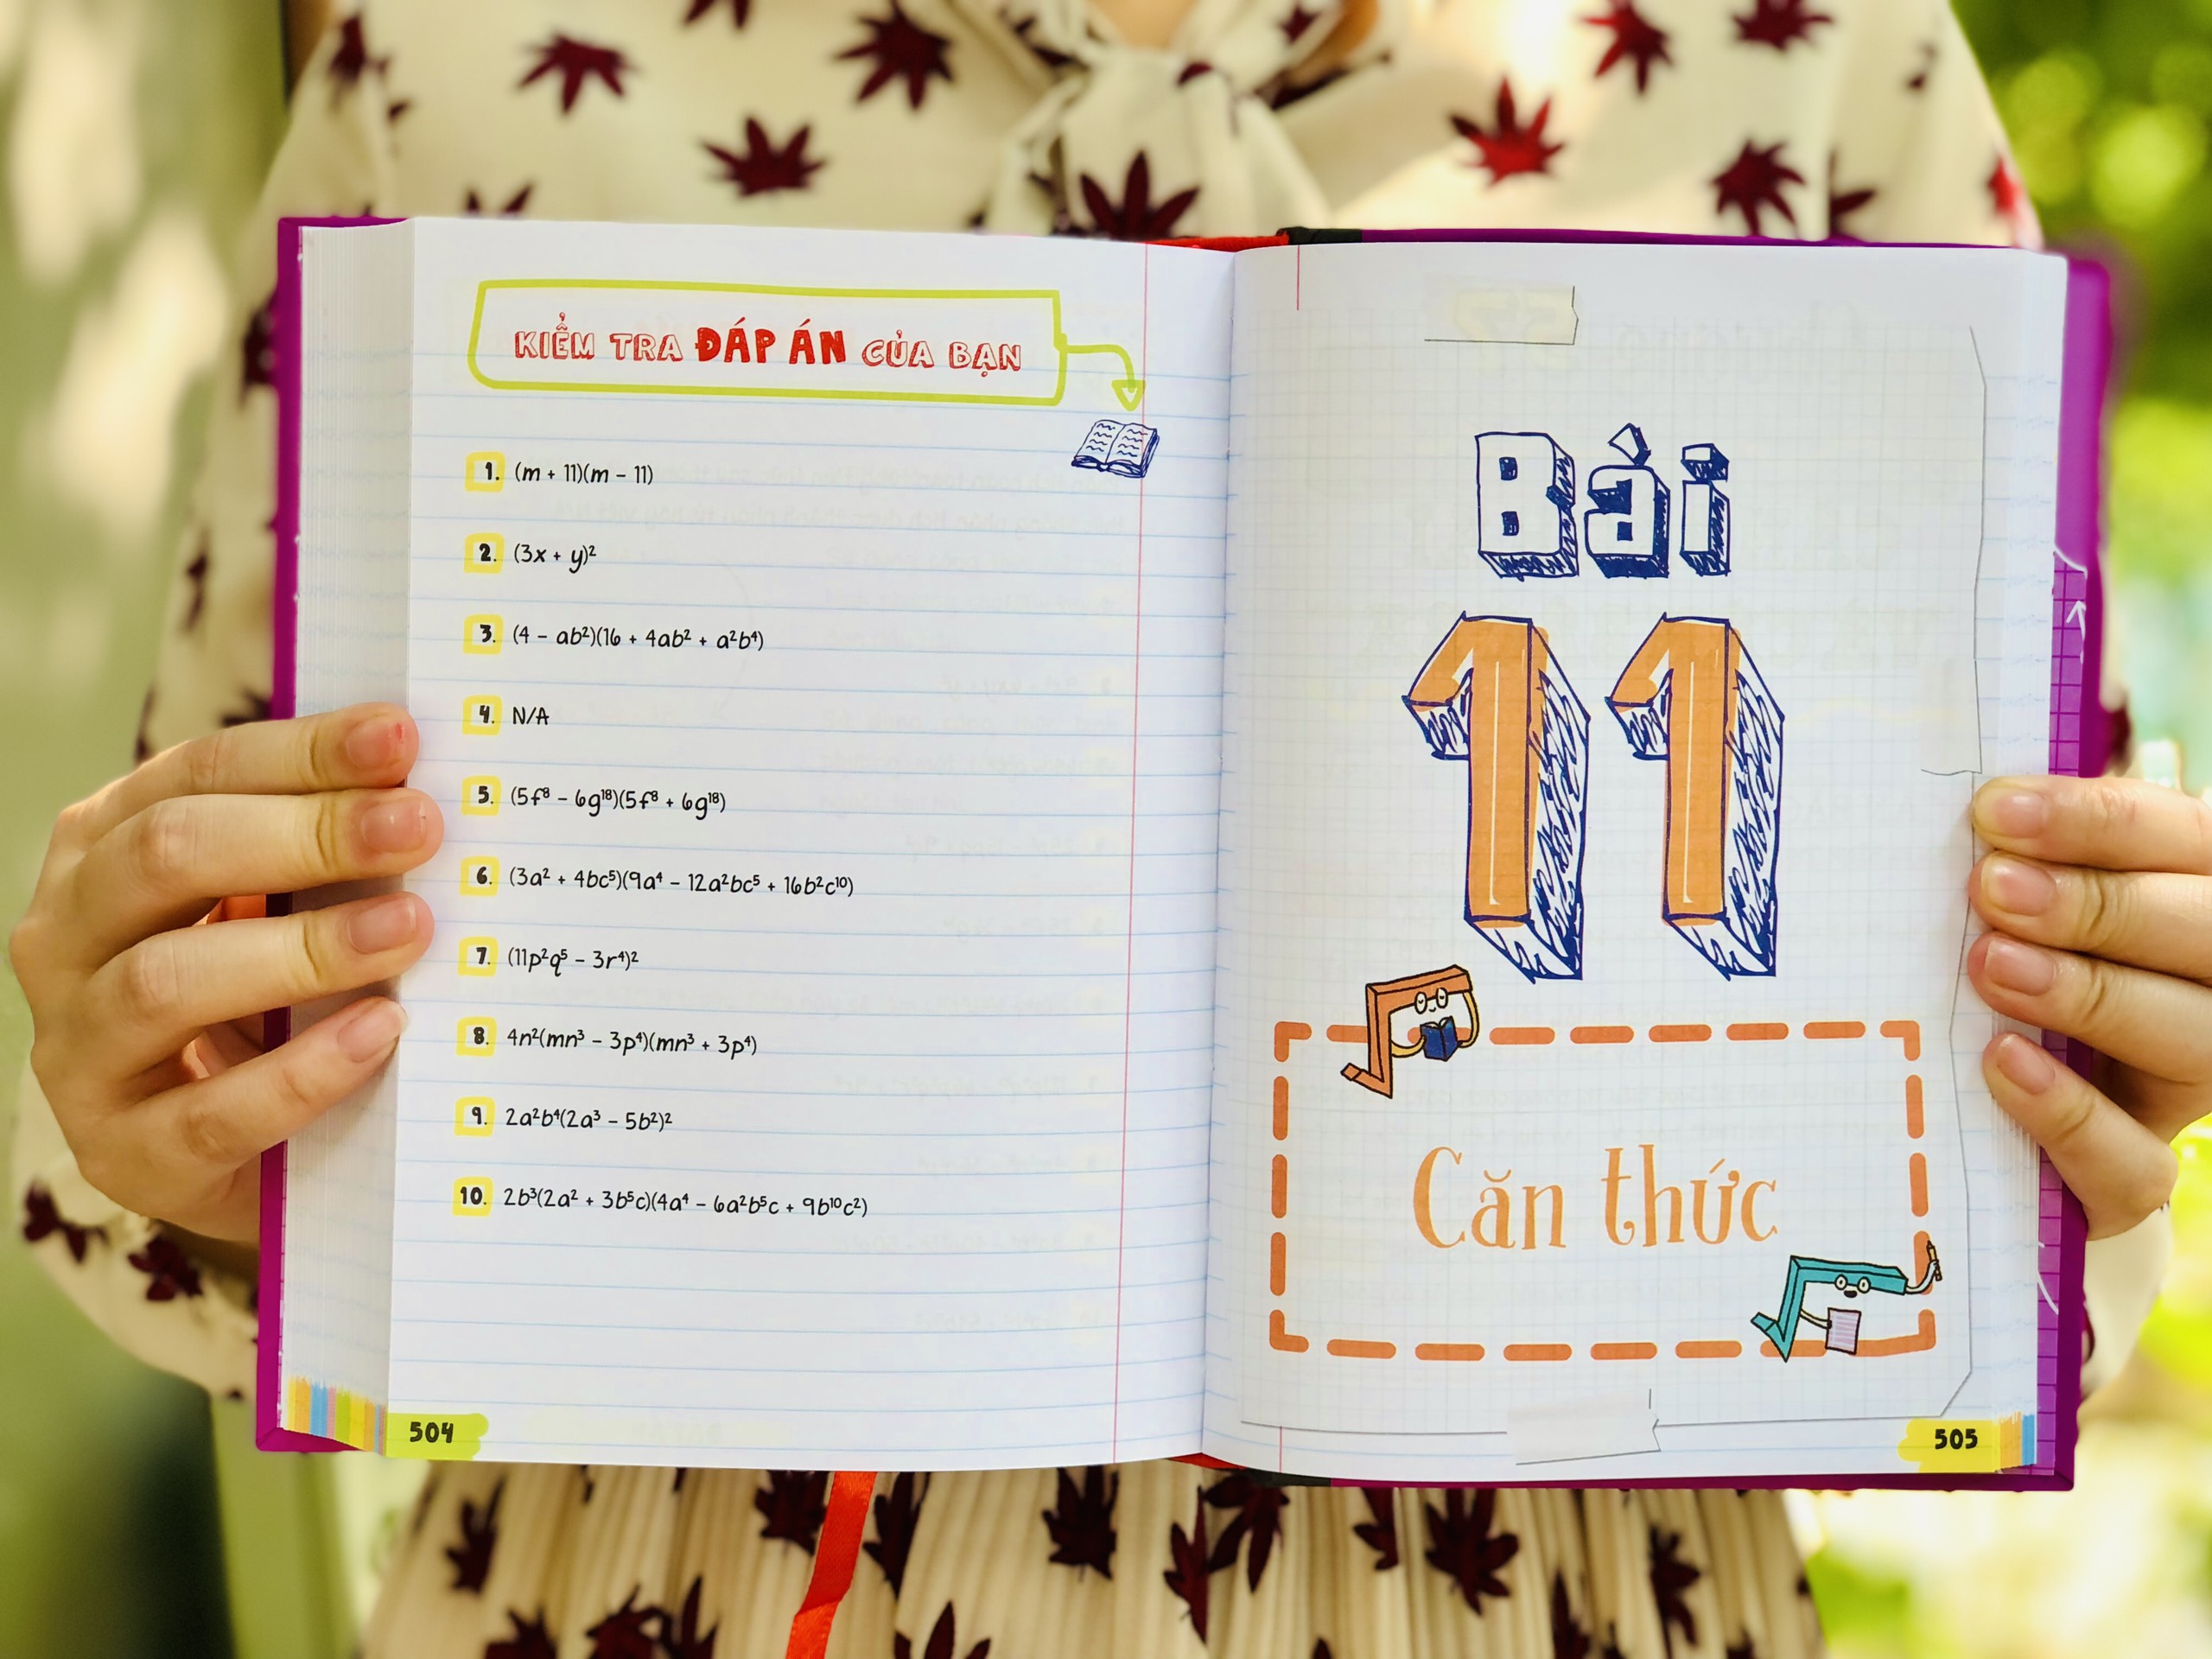 KIỂM TRA ĐÁP ÁN CỦA BẠN
1. (m + 11)(m – 11)
2. (3x + y)²
3. (4 – ab²)(16 + 4ab² + a²b⁴)
4. N/A
5. (5f⁸ – 6g¹⁸)(5f⁸ + 6g¹⁸)
6. (3a² + 4bc⁵)(9a⁴ – 12a²bc⁵ + 16b²c¹⁰)
7. (11p²q⁵ – 3r⁴)²
8. 4n²(mn³ – 3p⁴)(mn³ + 3p⁴)
9. 2a²b⁴(2a³ – 5b²)²
10. 2b³(2a² + 3b⁵c)(4a⁴ – 6a²b⁵c + 9b¹⁰c²)
504
Bài
11
Căn thức
505